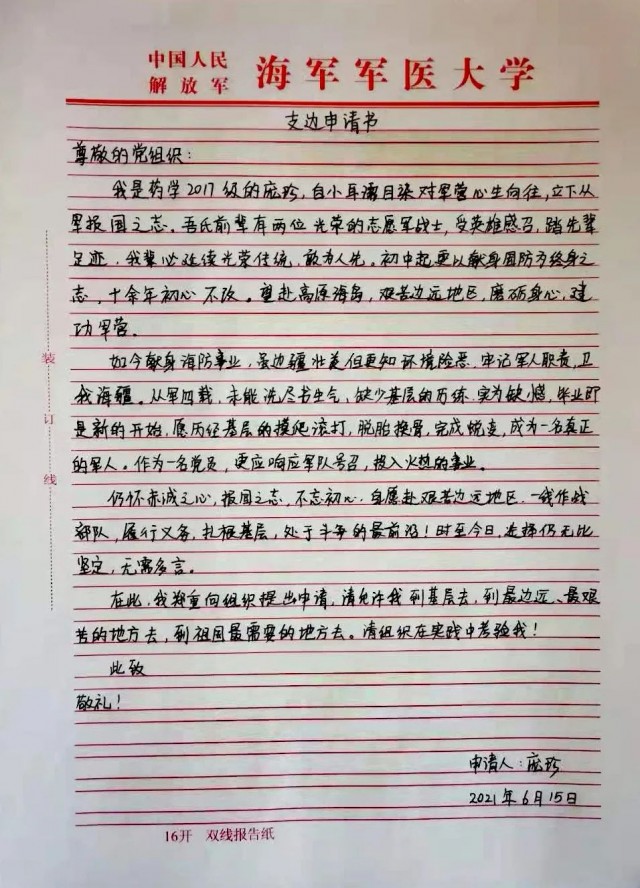 中国人民
解放军
海军军医大学
支边申请书
尊敬的党组织：
我是药学2017级的庞珍，自小耳濡目染对军营心生向往，立下从
军报国之志。吾氏前辈有两位光荣的志愿军战士，受英雄感召，踏先辈
足迹，我辈必延续光荣传统，敢为人先。初中起更以献身国防为终身之
志，十余年初心不改。望赴高原海岛，艰苦边远地区，磨砺身心，建
功军营。
如今献身海防事业，虽边疆壮美但更知环境险恶，牢记军人职责，卫
我海疆。从军四载，未能洗尽书生气，缺少基层的历练，实为缺憾，毕业即
是新的开始，愿历经基层的摸爬滚打，脱胎换骨，完成蜕变，成为一名真正
的军人。作为一名党员，更应响应军队号召，投入火热的事业。
仍怀赤诚之心，报国之志，不忘初心，自愿赴艰苦边远地区、一线作战
部队，履行义务，扎根基层，处于斗争的最前沿！时至今日，选择仍无比
坚定，无需多言。
在此，我郑重向组织提出申请，请允许我到基层去，到最边远、最艰
苦的地方去，到祖国最需要的地方去。请组织在实践中考验我！
此致
敬礼！
申请人：庞珍
2021年6月15日
装
订
线
16开 双线报告纸